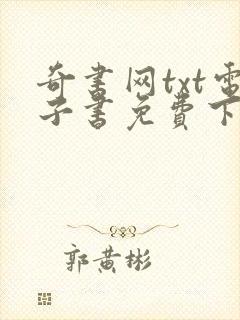 奇书网txt电
子书免费下
郭黄彬